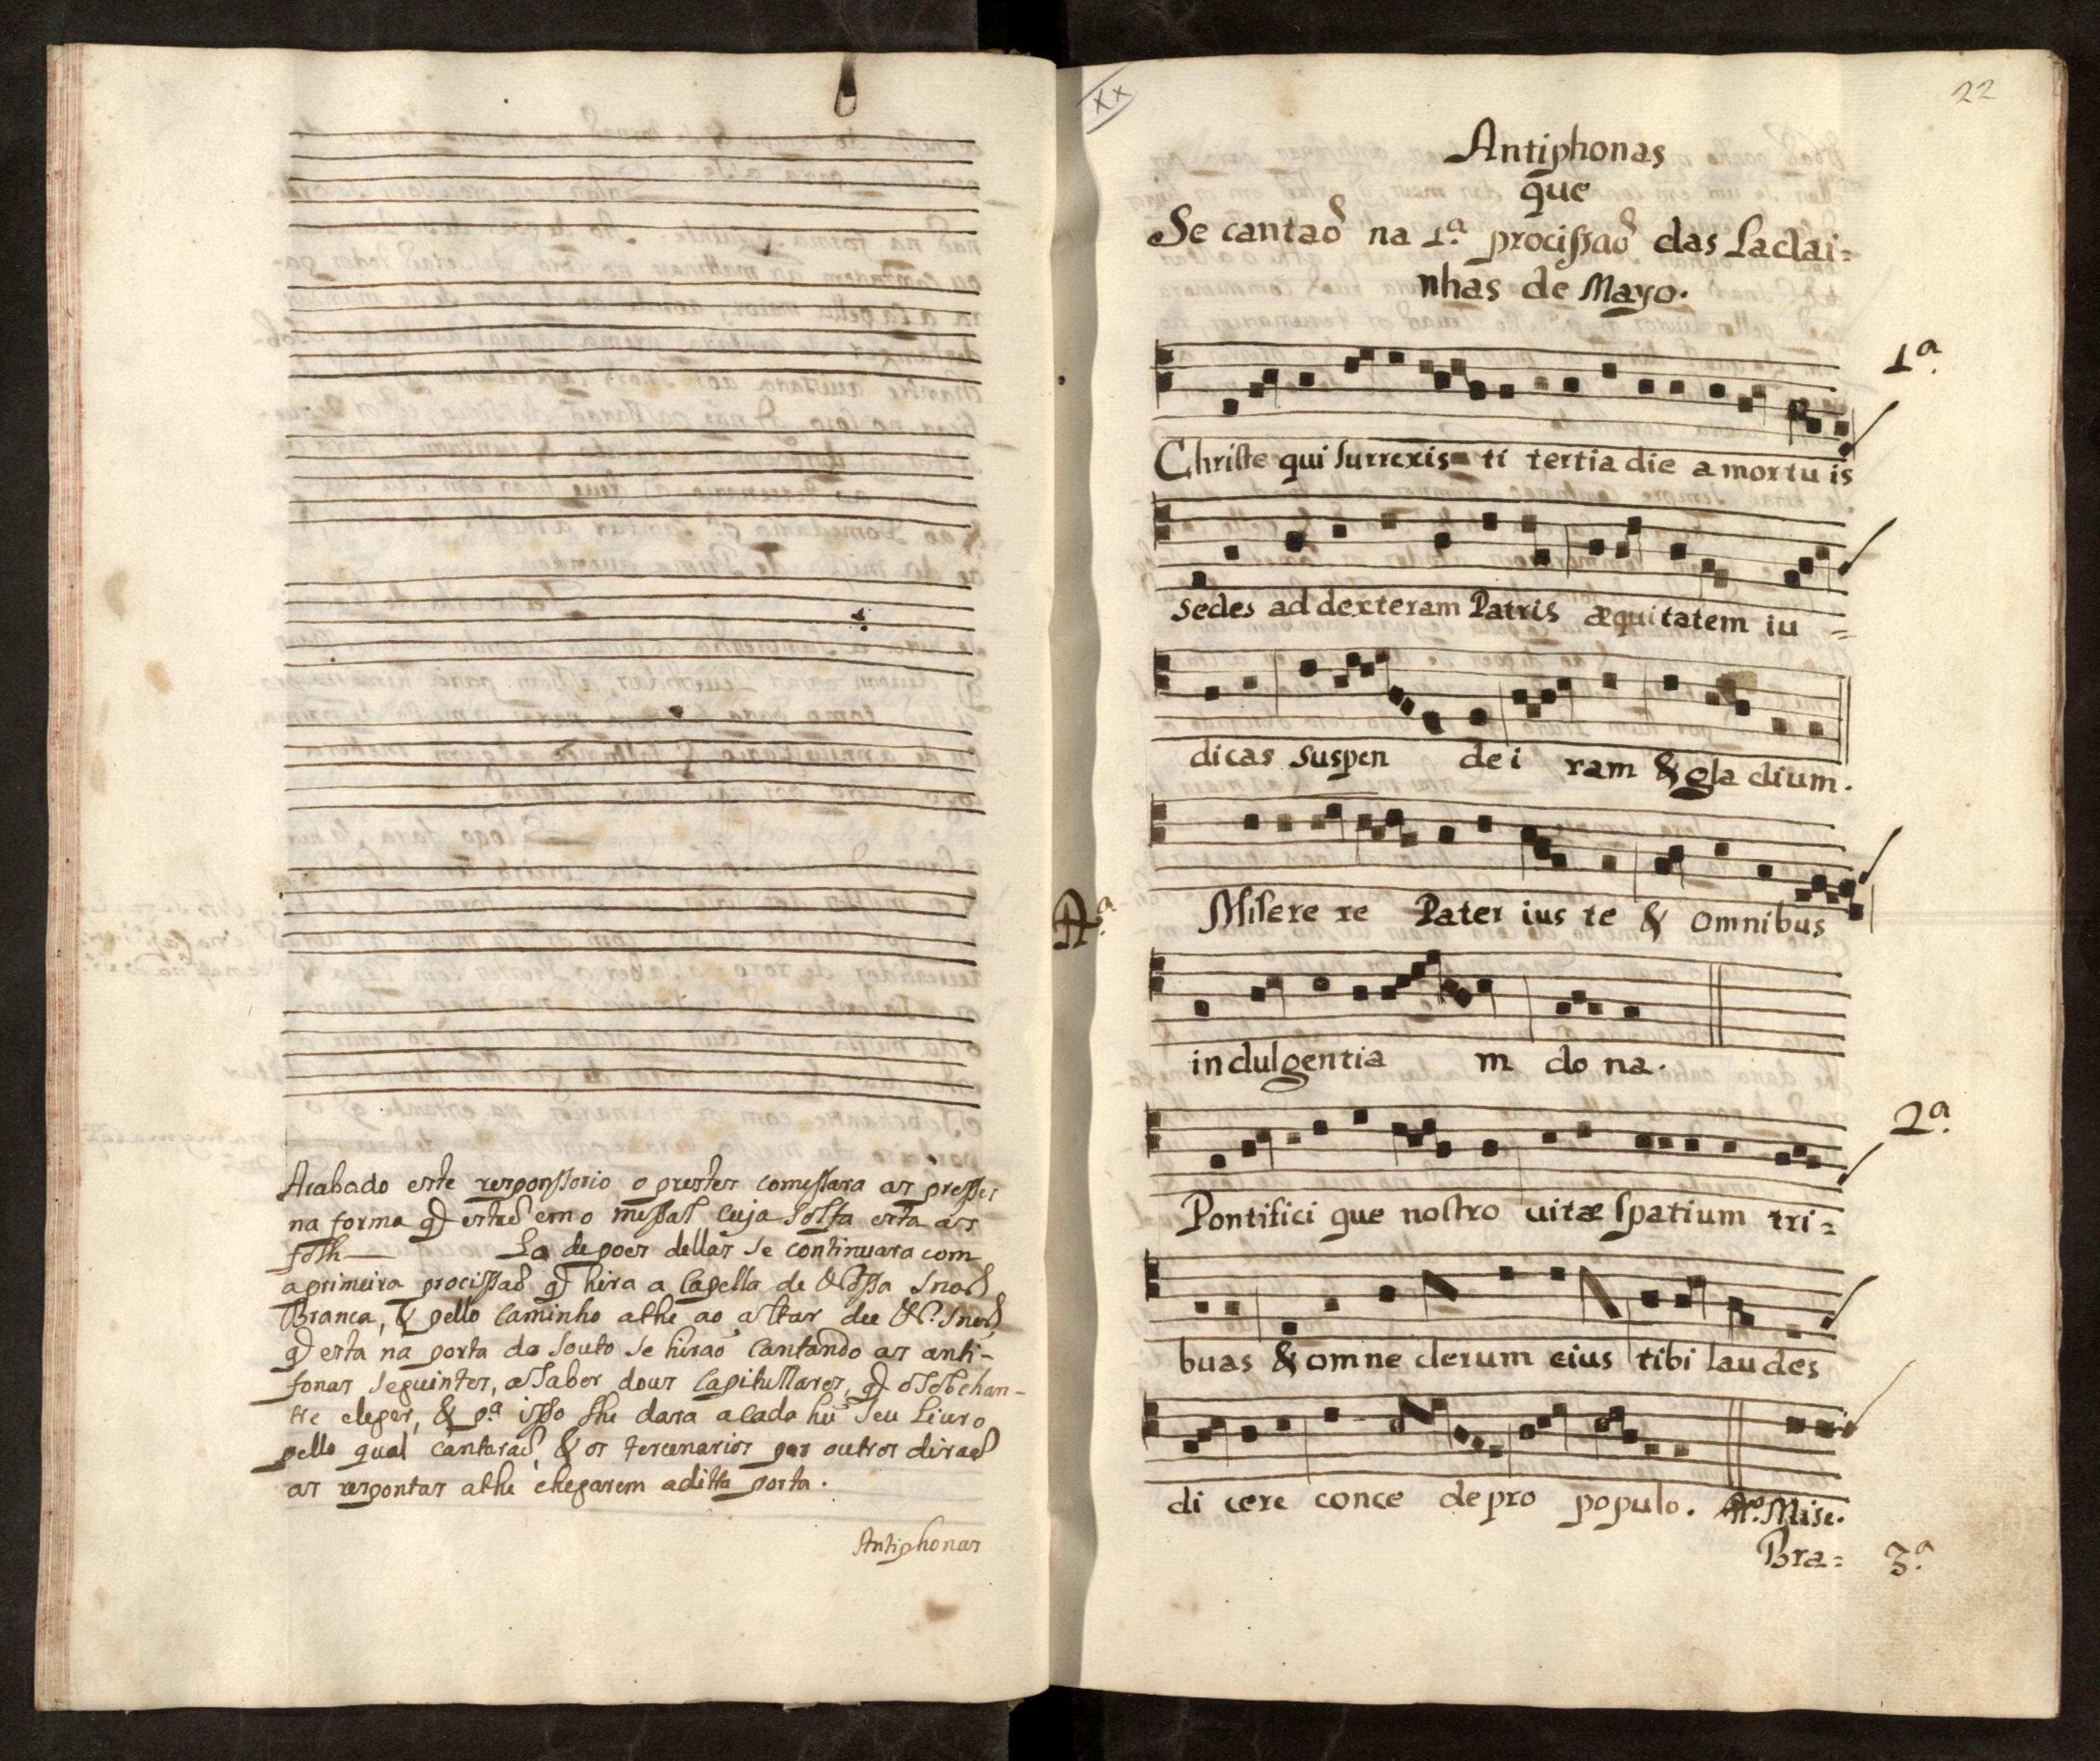 Acabado este responssorio o prestes comessara as presses
na forma q̃ estaõ em o missal cuja Solfa esta às
folh — La depoes dellas se continuara com
a primeira procissaõ q̃ hira a Capella de Nossa Snorã
Branca, & pello caminho athe ao altar de N. Snrã
q̃ esta na porta do Souto se hiraõ cantando as anti-
fonas seguintes, a Saber dous Capitullares, q̃ o Sobchan-
tre eleger, & p.ª isso lhe dara a cada hũ seu Livro
pello qual cantaraõ, & os tercenarios por outros diraõ
as repontas athe chegarem a ditta porta.
Antiphonas
xx
22
Antiphonas
que
Se cantaõ na 1.ª procissaõ das Ladai=
nhas de Mayo.
1.ª
Christe qui surrexis= ti tertia die a mortu is
sedes ad dexteram Patris æquitatem iu =
dicas suspen de i ram & gla dium.
R.ª
Misere re Pater ius te & omnibus
indulgentia m do na.
2.ª
Pontifici que nostro vitæ spatium tri=
buas & omne clerum eius tibi laudes
di cere conce de pro populo. R.º Mise.
Bra= 3.ª